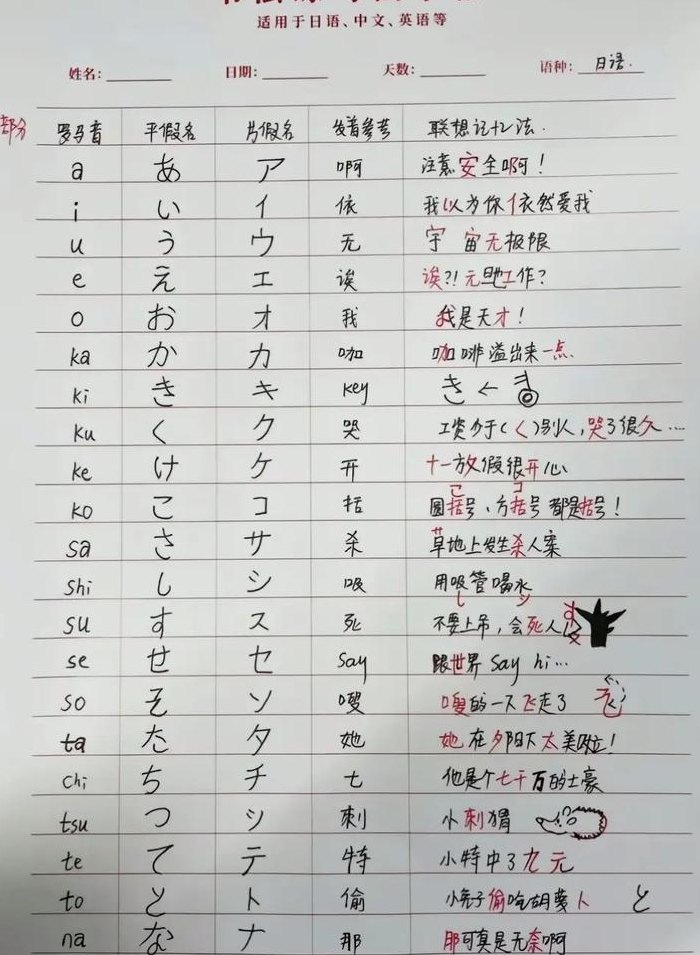 适用于日语、中文、英语等
姓名： 日期： 天数： 语种：日语.
部分
罗马音 平假名 片假名 发音参考 联想记忆法.
a あ ア 啊 注意安全啊！
i い イ 依 我以为你依然爱我
u う ウ 无 宇 宙无极限
e え エ 诶 诶?! 元旦工作?
o お オ 我 我是天才！
ka か カ 咖 咖啡溢出来一点.
ki き キ key き ←
ku く ク 哭 工资少于(く)别人,哭了很久...
ke け ケ 开 十一放假很开心
こ コ
ko こ コ 括 圆括号、方括号 都是括号！
サ
sa さ サ 杀 草地上发生杀人案
shi し シ 吸 用吸管喝水
し シ
su す ス 死 不要上吊，会死人 す ス
se せ セ say 跟世界 say hi...
so そ ソ 嗖 嗖的一下飞走了
ta た タ 她 她在夕阳下太美啦！
chi ち チ 七 他是个七千万的土豪
tsu つ ッ 刺 小刺猬
te て テ 特 小特中了九元
to と ト 偷 小兔子偷吃胡萝卜 と
na な ナ 那 那可真是无奈啊